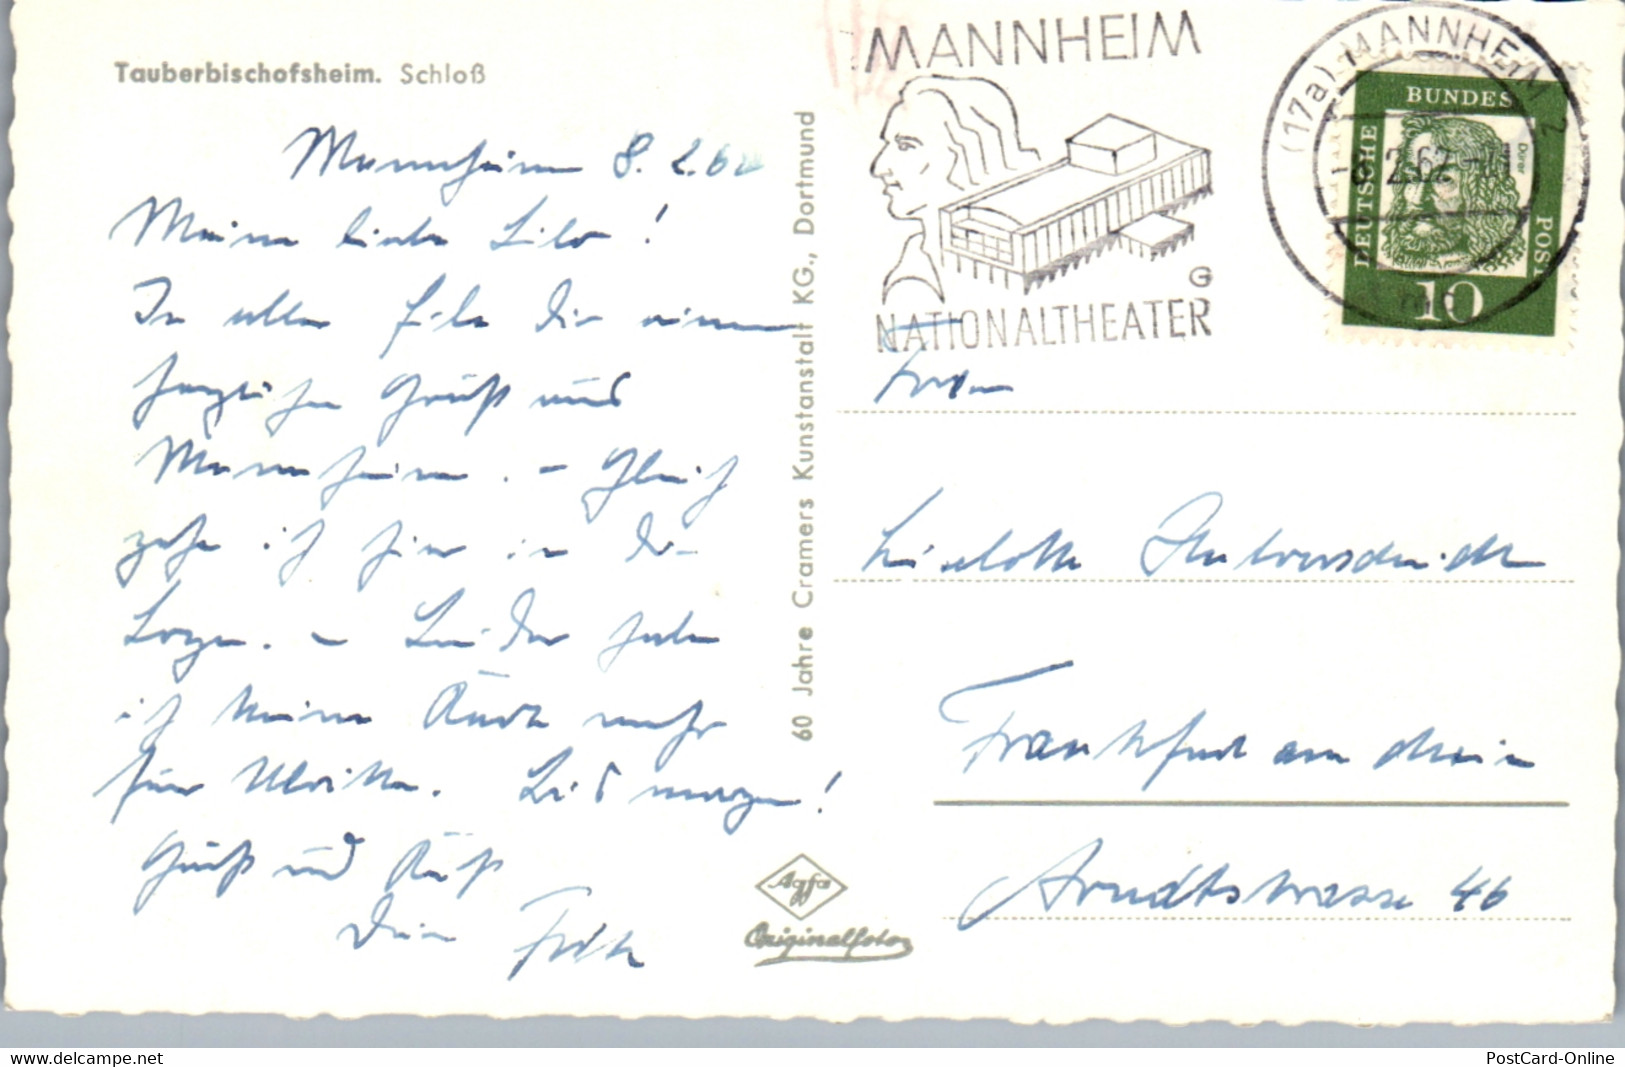 Tauberbischofsheim. Schloß
Mannheim 8.2.62
Meine liebe Lilo!
In aller Eile Dir einen
herzlichen Gruß aus
Mannheim. – Gleich
gehe ich hier in die
Loge. – Leider habe
ich keine Karte mehr
für Ulrike. Bis morgen!
Gruß und Kuß
Dein Fritz
60 Jahre Cramers Kunstanstalt KG., Dortmund
Agfa
Originalfoto
MANNHEIM
G
NATIONALTHEATER
(17a) MANNHEIM 2
8.2.62
DEUTSCHE
BUNDES
POST
Dürer
10
Frau
Lieselotte
Frankfurt am Main
Arndtstrasse 46
www.delcampe.net
PostCard-Online